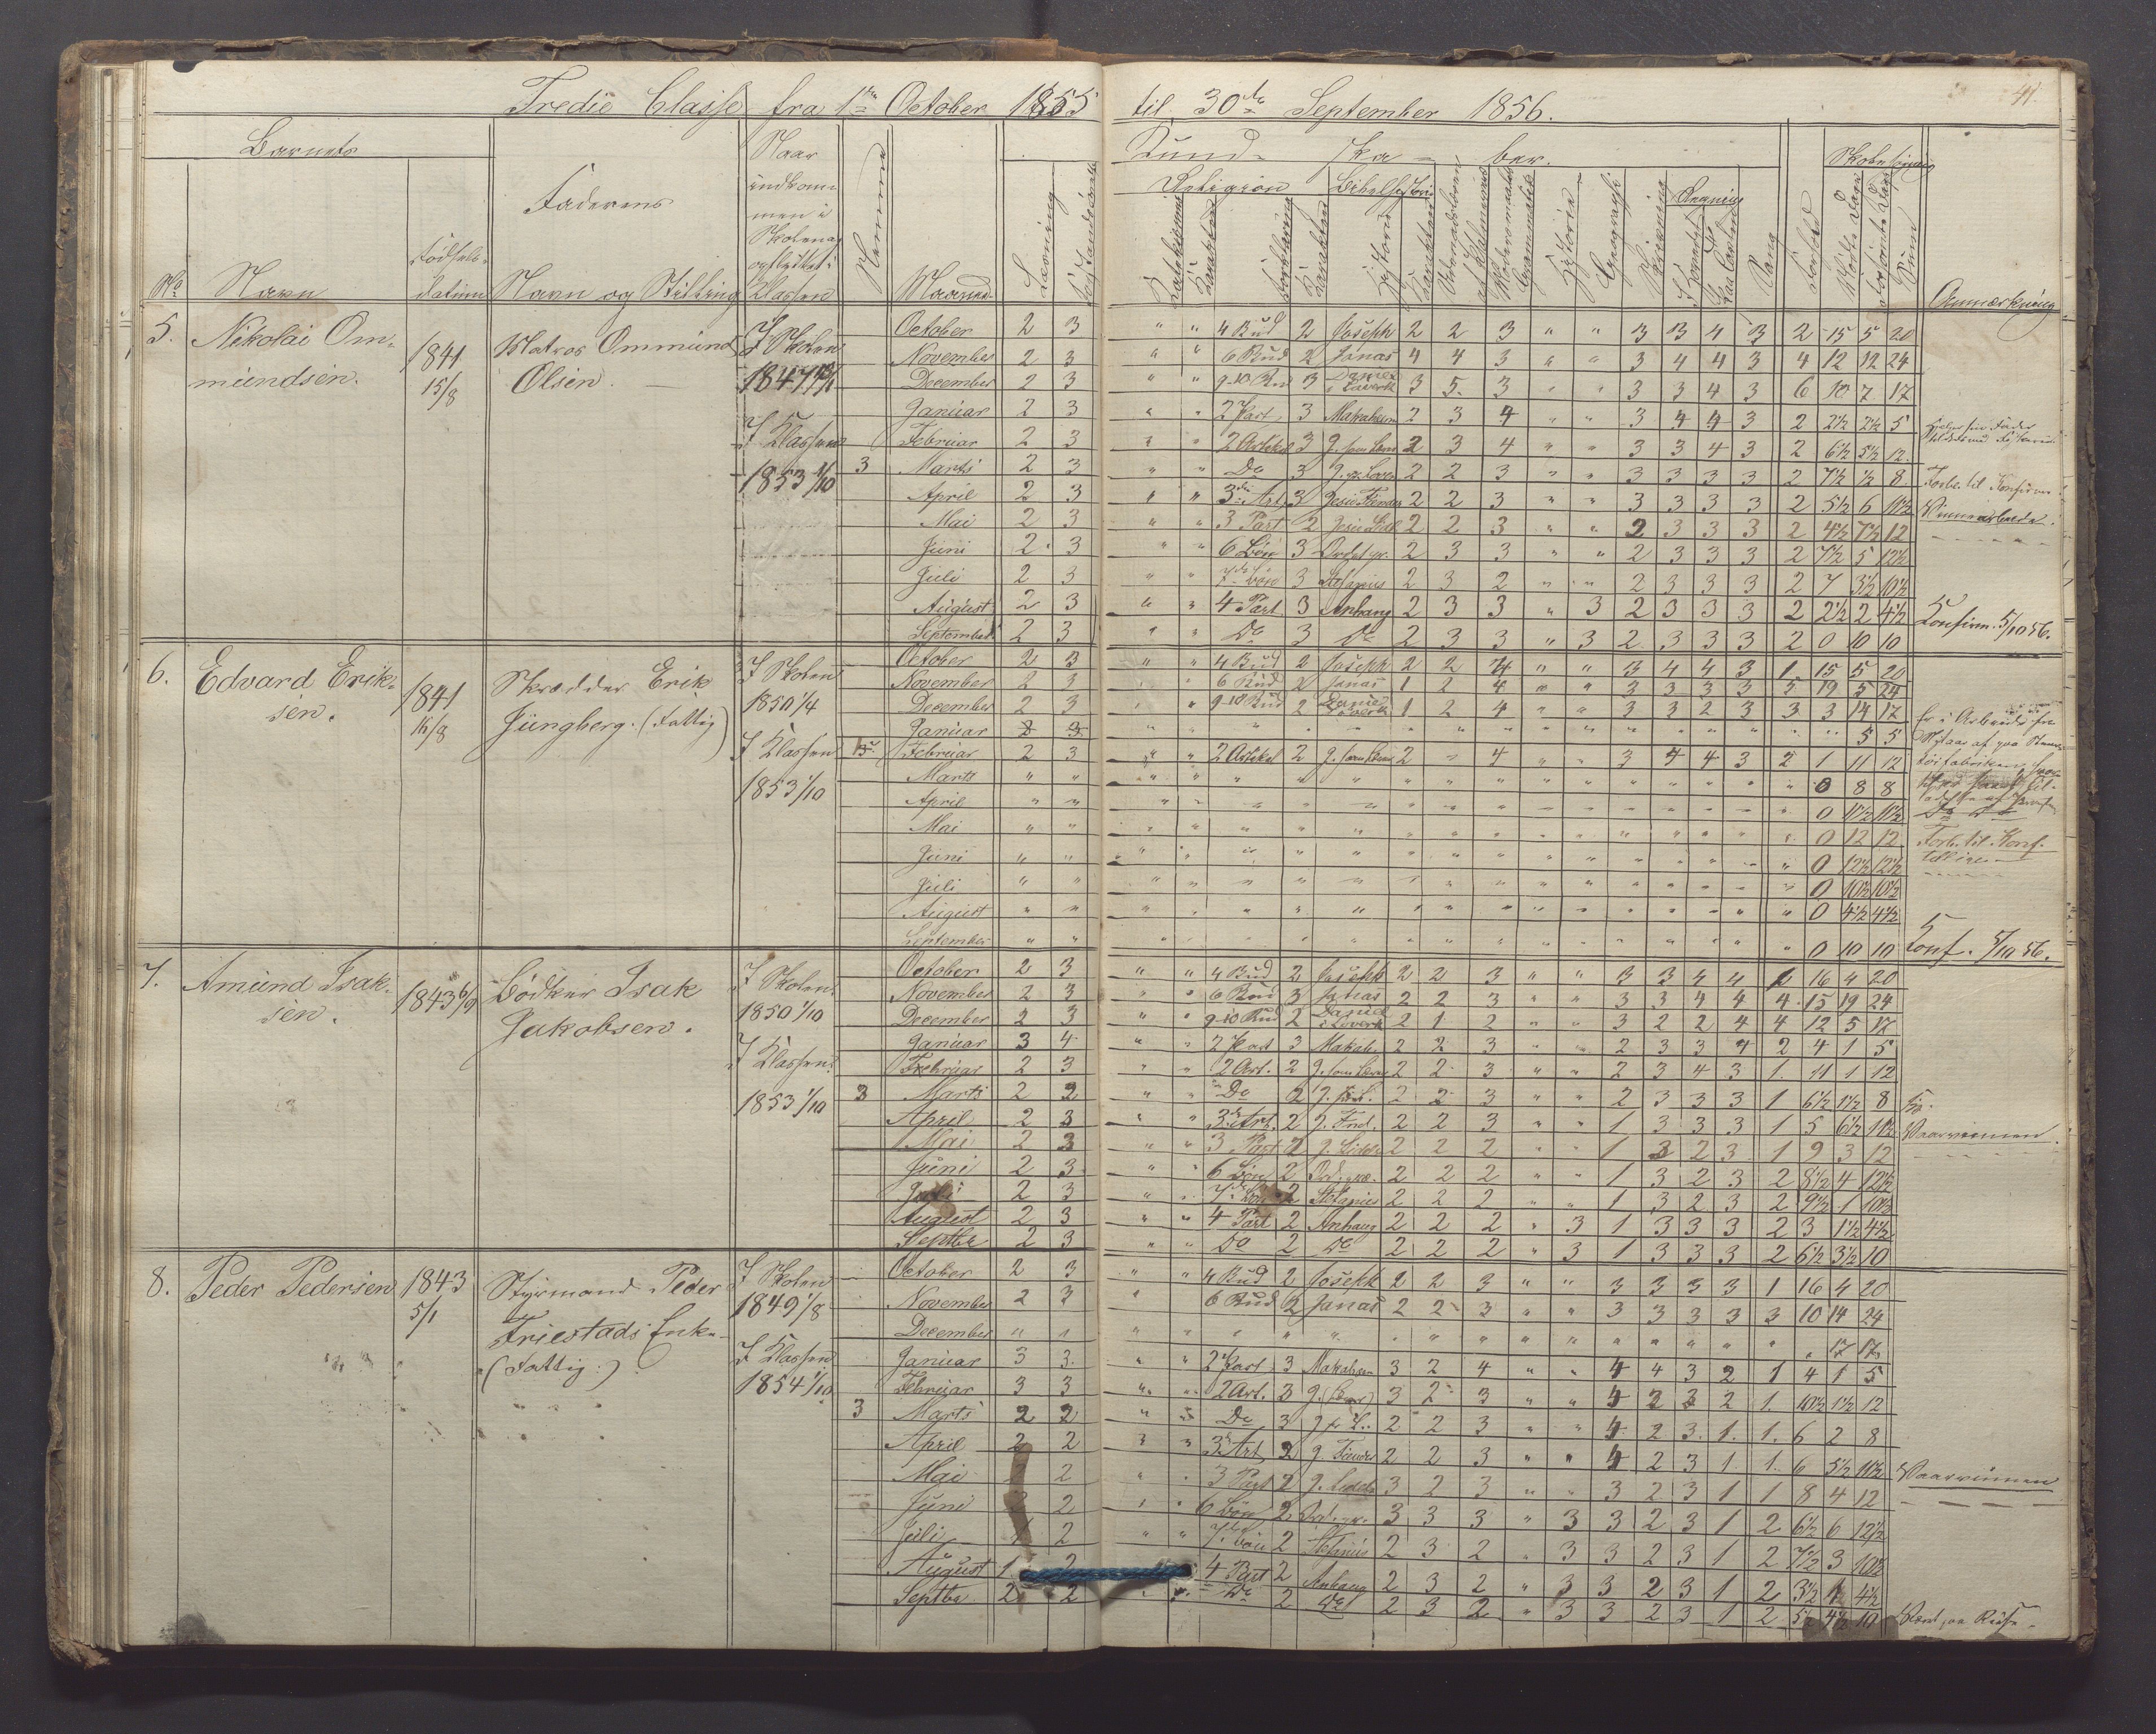 Tredie Classe fra 1ste October 1855 til 30de September 1856.
41.
Barnets
No
Navn
Fødsels-
datum
Faderens
Navn og Stilling
Naar
indkom-
men i
Skolen og
opflyttet i
Klassen
Nemme
Maaned
Læsning
Kund- ska- ber.
Religion
Bibelhistorie
Forklaring
Karakter
Historie
Karakter
Modersmaalet
Grammatik
Historie
Geografi
Skrivning
Regning
Sang
Forhold
Skolesøgning
Mødte Dage
Forsømte Dage
Anmærkning
5. Nikolai Om-
mundsen.
1841
15/8
Matros Ommund
Olsen.
I Skolen
1847
I Klassen
1853 1/10
3
October 2 3 " " 4 Bud 2 Joseph 2 2 3 " " 3 3 4 3 2 15 5 20
November 2 3 " " 6 Bud 2 Jonas 4 4 3 " " 3 4 4 3 4 12 12 24
December 2 3 " " 9-10 Bud 3 Daniel i Løverk 3 5 3 " " 3 3 4 3 6 10 7 17
Januar 2 3 " " 2 Part 3 Makabæern 2 3 4 " " 3 4 4 3 2 2½ 2½ 5
Februar 2 3 " " 2 Artikel 3 J. som Lærer 2 3 4 " " 3 3 4 3 2 6½ 5½ 12
Marts 2 3 " " Do 3 2 2 3 " " 3 3 3 3 2 7½ ½ 8
April 2 3 " " 3die Art. 3 Jesu Fiender 2 2 3 " " 3 3 3 3 2 5½ 6 11½
Mai 2 3 " " 3 Part 2 Jesu Lidel 2 2 3 " " 2 3 3 3 2 4½ 7½ 12
Juni 2 3 " " 6 Bøn 3 2 3 3 " " 2 3 3 3 2 7½ 5 12½
Juli 2 3 " " 7de Bøn 3 Stefanus 2 3 2 " " 2 3 3 3 2 7 3½ 10½
August 2 3 " " 4 Part 3 Anhang 2 3 3 " 3 2 3 3 3 2 2½ 2 4½
September 2 3 " " Do 3 Do 2 3 3 " 3 2 3 3 3 2 0 10 10
Forb. til Konfirm.
Konfirm. 5/10 56.
6. Edvard Erik-
sen.
1841
16/8
Skrædder Erik
Jungberg. (Fattig)
I Skolen
1850 1/4
I Klassen
1853 1/10
October 2 3 " " 4 Bud 2 Joseph 2 2 4 " " 3 4 4 3 1 15 5 20
November 2 3 " " 6 Bud 2 Jonas 1 2 4 " " 3 3 3 3 5 19 5 24
December 2 3 " " 9-10 Bud 2 Daniel i Løverk 1 2 4 " " 3 3 2 3 3 3 14 17
Januar 2 3 " 5 5
Februar 2 3 " " 2 Artikel 2 J. som Lærer 2 " 4 " " 3 4 4 3 2 1 11 12
Marts " " 0 8 8
April " " 0 11½ 11½
Mai " " 0 12 12
Juni " " 0 12½ 12½
Juli " " 0 10½ 10½
August " " 0 4½ 4½
September " " 0 10 10
Er i Arbeide
Forb. til Konf.
Konf. 5/10 56.
7. Amund Isak-
sen.
1843 6/9
Bødker Isak
Jakobsen.
I Skolen
1850 1/10
I Klassen
1853 1/10
3
October 2 3 " " 4 Bud 2 Joseph 2 2 3 " " 3 3 4 4 6 16 4 20
November 2 3 " " 6 Bud 3 Jonas 2 2 3 " " 3 3 4 4 4 15 19 24
December 2 3 " " 9-10 Bud 2 Daniel i Løverk 2 1 2 " " 3 2 2 4 4 12 5 17
Januar 3 4 " " 2 Part 3 Makab. 2 2 3 " " 2 3 3 4 2 4 1 5
Februar 2 3 " " 2 Art. 2 J. som Lærer 2 2 3 " " 2 3 4 3 1 11 1 12
Marts 2 2 " " Do 2 2 2 3 " " 2 3 3 3 1 6½ 1½ 8
April 2 3 " " 3die Art. 2 J. Find. 2 2 3 " " 1 3 3 3 1 5 6½ 11½
Mai 2 3 " " 3 Part 2 J. Lidelse 2 2 2 " " 1 3 2 3 1 9 3 12
Juni 2 3 " " 6 Bøn 2 2 2 2 " " 1 3 2 3 2 8½ 4 12½
Juli 2 3 " " 7de Bøn 2 Stefanus 2 2 2 " " 1 3 2 3 2 9½ 1 10½
August 2 3 " " 4 Part 2 Anhang 2 2 2 " 3 1 3 3 3 2 3 1½ 4½
Septbr 2 3 " " Do 2 Do 2 2 2 " 3 1 3 3 3 2 6½ 3½ 10
Vaarvinnen
8. Peder Pedersen
1843
5/1
Styrmand Peder
Friestads Enke
(Fattig.)
I Skolen
1849 1/8
I Klassen
1854 1/10
3
October 2 3 " " 4 Bud 2 Joseph 2 2 3 " " 3 3 3 3 1 16 4 20
November 2 3 " 6 Bud 2 Jonas 2 2 3 " " 3 3 3 3 3 10 14 24
December " " 17 17
Januar 3 3 " " 2 Part 3 Makabæern 3 2 4 " " 4 4 3 2 1 4 1 5
Februar 3 3 " " 2 Art. 3 J. (Lærer) 3 2 3 " " 4 3 3 2 1 10½ 1½ 12
Marts 2 2 " " Do 3 2 2 3 " " 4 2 3 1 1 6 2 8
April 2 2 " " 3die Art 2 J. Fiender 2 2 3 " " 4 2 3 1 1 6 5½ 11½
Mai 2 " " 3 Part 2 J. Lidelse 3 2 3 " " 3 2 3 1 1 8 4 12
Juni 2 " " 6 Bøn 2 3 3 3 " 3 3 2 3 1 2 6½ 6 12½
Juli 2 " " 7de Bøn 2 Stefanus 2 3 2 " 3 3 2 3 1 2 7½ 3 10½
August 1 2 4 Part 2 Anhang 2 3 2 " 3 3 2 3 1 2 3½ 1 4½
Septbr 2 2 " " Do 2 Do 2 3 2 " 3 3 2 3 1 2 5½ 4½ 10
Vaarvinnen